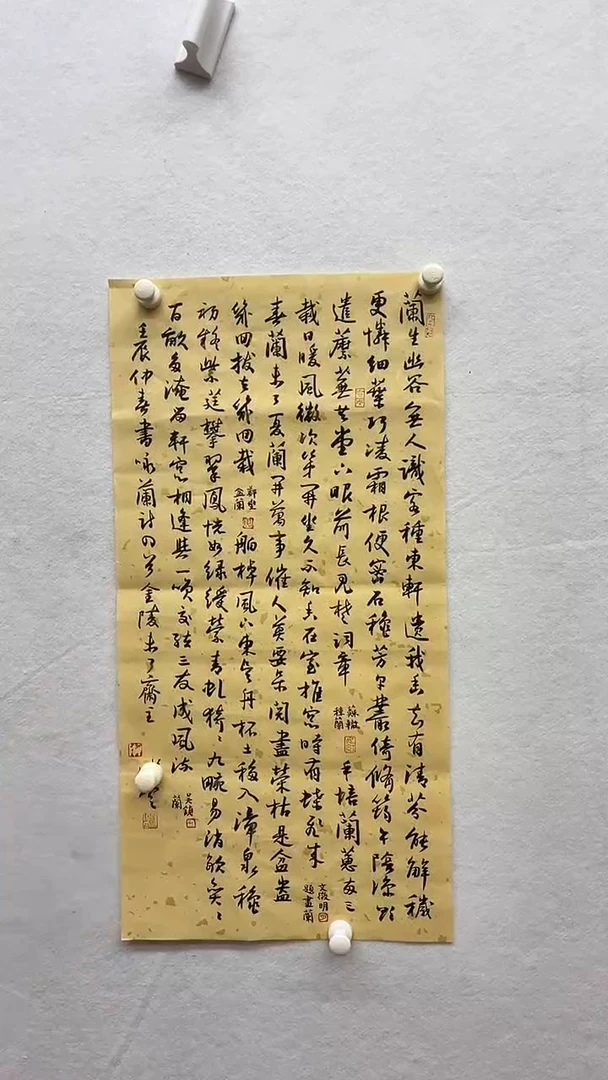 蘭生幽谷無人識客種東軒遺我香知有清芬能解穢
更憐細葉巧凌霜根便密石穐芳早叢倚脩筠午陰涼欲
遣蘼蕪共堂下眼前長見楚詞章 蘇轍種蘭 手培蘭蕙兩三
栽日暖風微次第開坐久不知香在室推窗時有蝶飛來 文徵明題畫蘭
春蘭未了夏蘭開萬事催人莫要呆閱盡榮枯是盆盎
幾回拔去幾回栽 鄭燮盆蘭 舶棹風從東 舟杯土移入漳泉穐
初移紫莛攀翠鳳恍如綠綬縈青虬猗猗九畹易消歇奕奕
百畝多淹留軒窗相逢與一笑交結三友成風流 吳鎮蘭
壬辰仲春書詠蘭詩四首金陵未了齋主